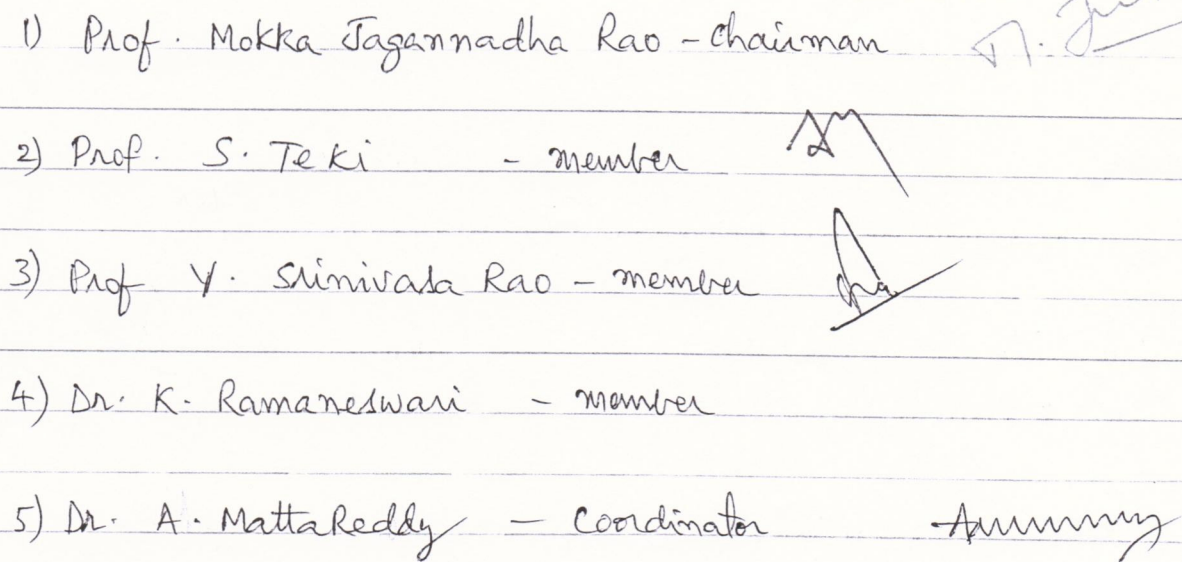 1) Prof. Mokka Jagannadha Rao - Chairman
2) Prof. S. Teki - member
3) Prof Y. Srinivasa Rao - member
4) Dr. K. Ramaneswari - member
5) Dr. A. MattaReddy - Coordinator